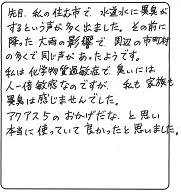 先日、私の住む市で、水道水に異臭が
するという声が多く出ました。その前に
降った大雨の影響で、周辺の市町村
の多くで同じ声があったようです。
私は化学物質過敏症で、臭いには
人一倍敏感なのですが、私も家族も
異臭は感じませんでした。
アクアス5のおかげだな、と思い
本当に使っていて良かったと思いました。